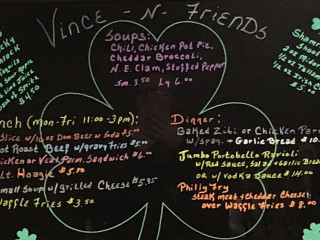 Vince -N- Friends
Soups:
Chili, Chicken Pot Pie,
Cheddar Broccoli,
N.E. Clam, Stuffed Pepper
Sm. 3.50 Lg 6.00
nch (Mon-Fri 11:00-3pm):
Slice w/12 oz Dom Beer or Soda $5.00
ot Roast Beef w/gravy Fries $5.00
icken or Veal Parm. Sandwich $6.00
lt. Hoagie $5.50
mall Soup w/Grilled Cheese $5.95
affle Fries $3.50
Dinner:
Baked Ziti or Chicken Parm
w/Spag. + Garlic Bread $10.
Jumbo Portobello Ravioli
w/Red Sauce, Salad + Garlic Bread
or w/ Vodka Sauce $14.00
Philly Fry
Steak meat + Cheddar Cheese
over Waffle Fries $8.00